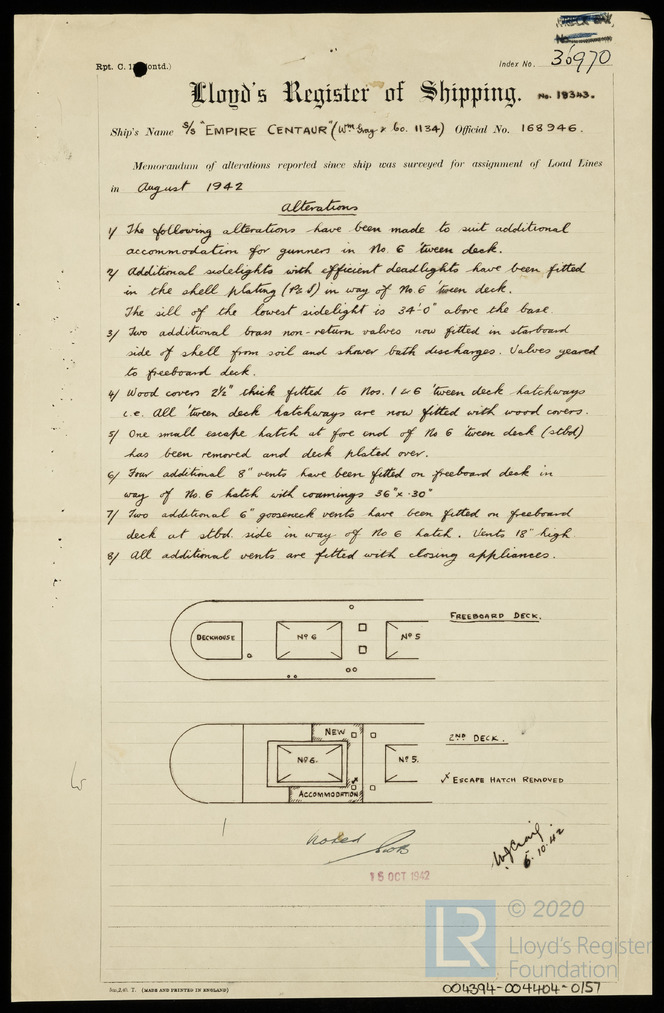 Index No. 36970
Lloyd's Register of Shipping. No. 19343.
Ship's Name S/S "EMPIRE CENTAUR" (Wm Gray & Co. 1134) Official No. 168946.
Memorandum of alterations reported since ship was surveyed for assignment of Load Lines
in August 1942
Alterations
1/ The following alterations have been made to suit additional
accommodation for gunners in No. 6 'tween deck.
2/ Additional sidelights with efficient deadlights have been fitted
in the shell plating (P & S) in way of No. 6 'tween deck.
The sill of the lowest sidelight is 34'-0" above the base.
3/ Two additional brass non-return valves now fitted in starboard
side of shell from soil and shower bath discharges. Valves geared
to freeboard deck.
4/ Wood covers 2½" thick fitted to Nos. 1 & 6 'tween deck hatchways
i.e. All 'tween deck hatchways are now fitted with wood covers.
5/ One small escape hatch at fore end of No 6 'tween deck (stbd)
has been removed and deck plated over.
6/ Four additional 8" vents have been fitted on freeboard deck in
way of No. 6 hatch with coamings 36" x .30"
7/ Two additional 6" gooseneck vents have been fitted on freeboard
deck at stbd. side in way of No 6 hatch. Vents 18" high.
8/ All additional vents are fitted with closing appliances.
FREEBOARD DECK.
DECKHOUSE
No 6
No 5
NEW
2ND DECK.
No 6.
No 5.
x ESCAPE HATCH REMOVED
ACCOMMODATION
Noted
6.10.42
15 OCT 1942
© 2020
LR
Lloyd's Register
Foundation
(MADE AND PRINTED IN ENGLAND)
004394-004404-0157